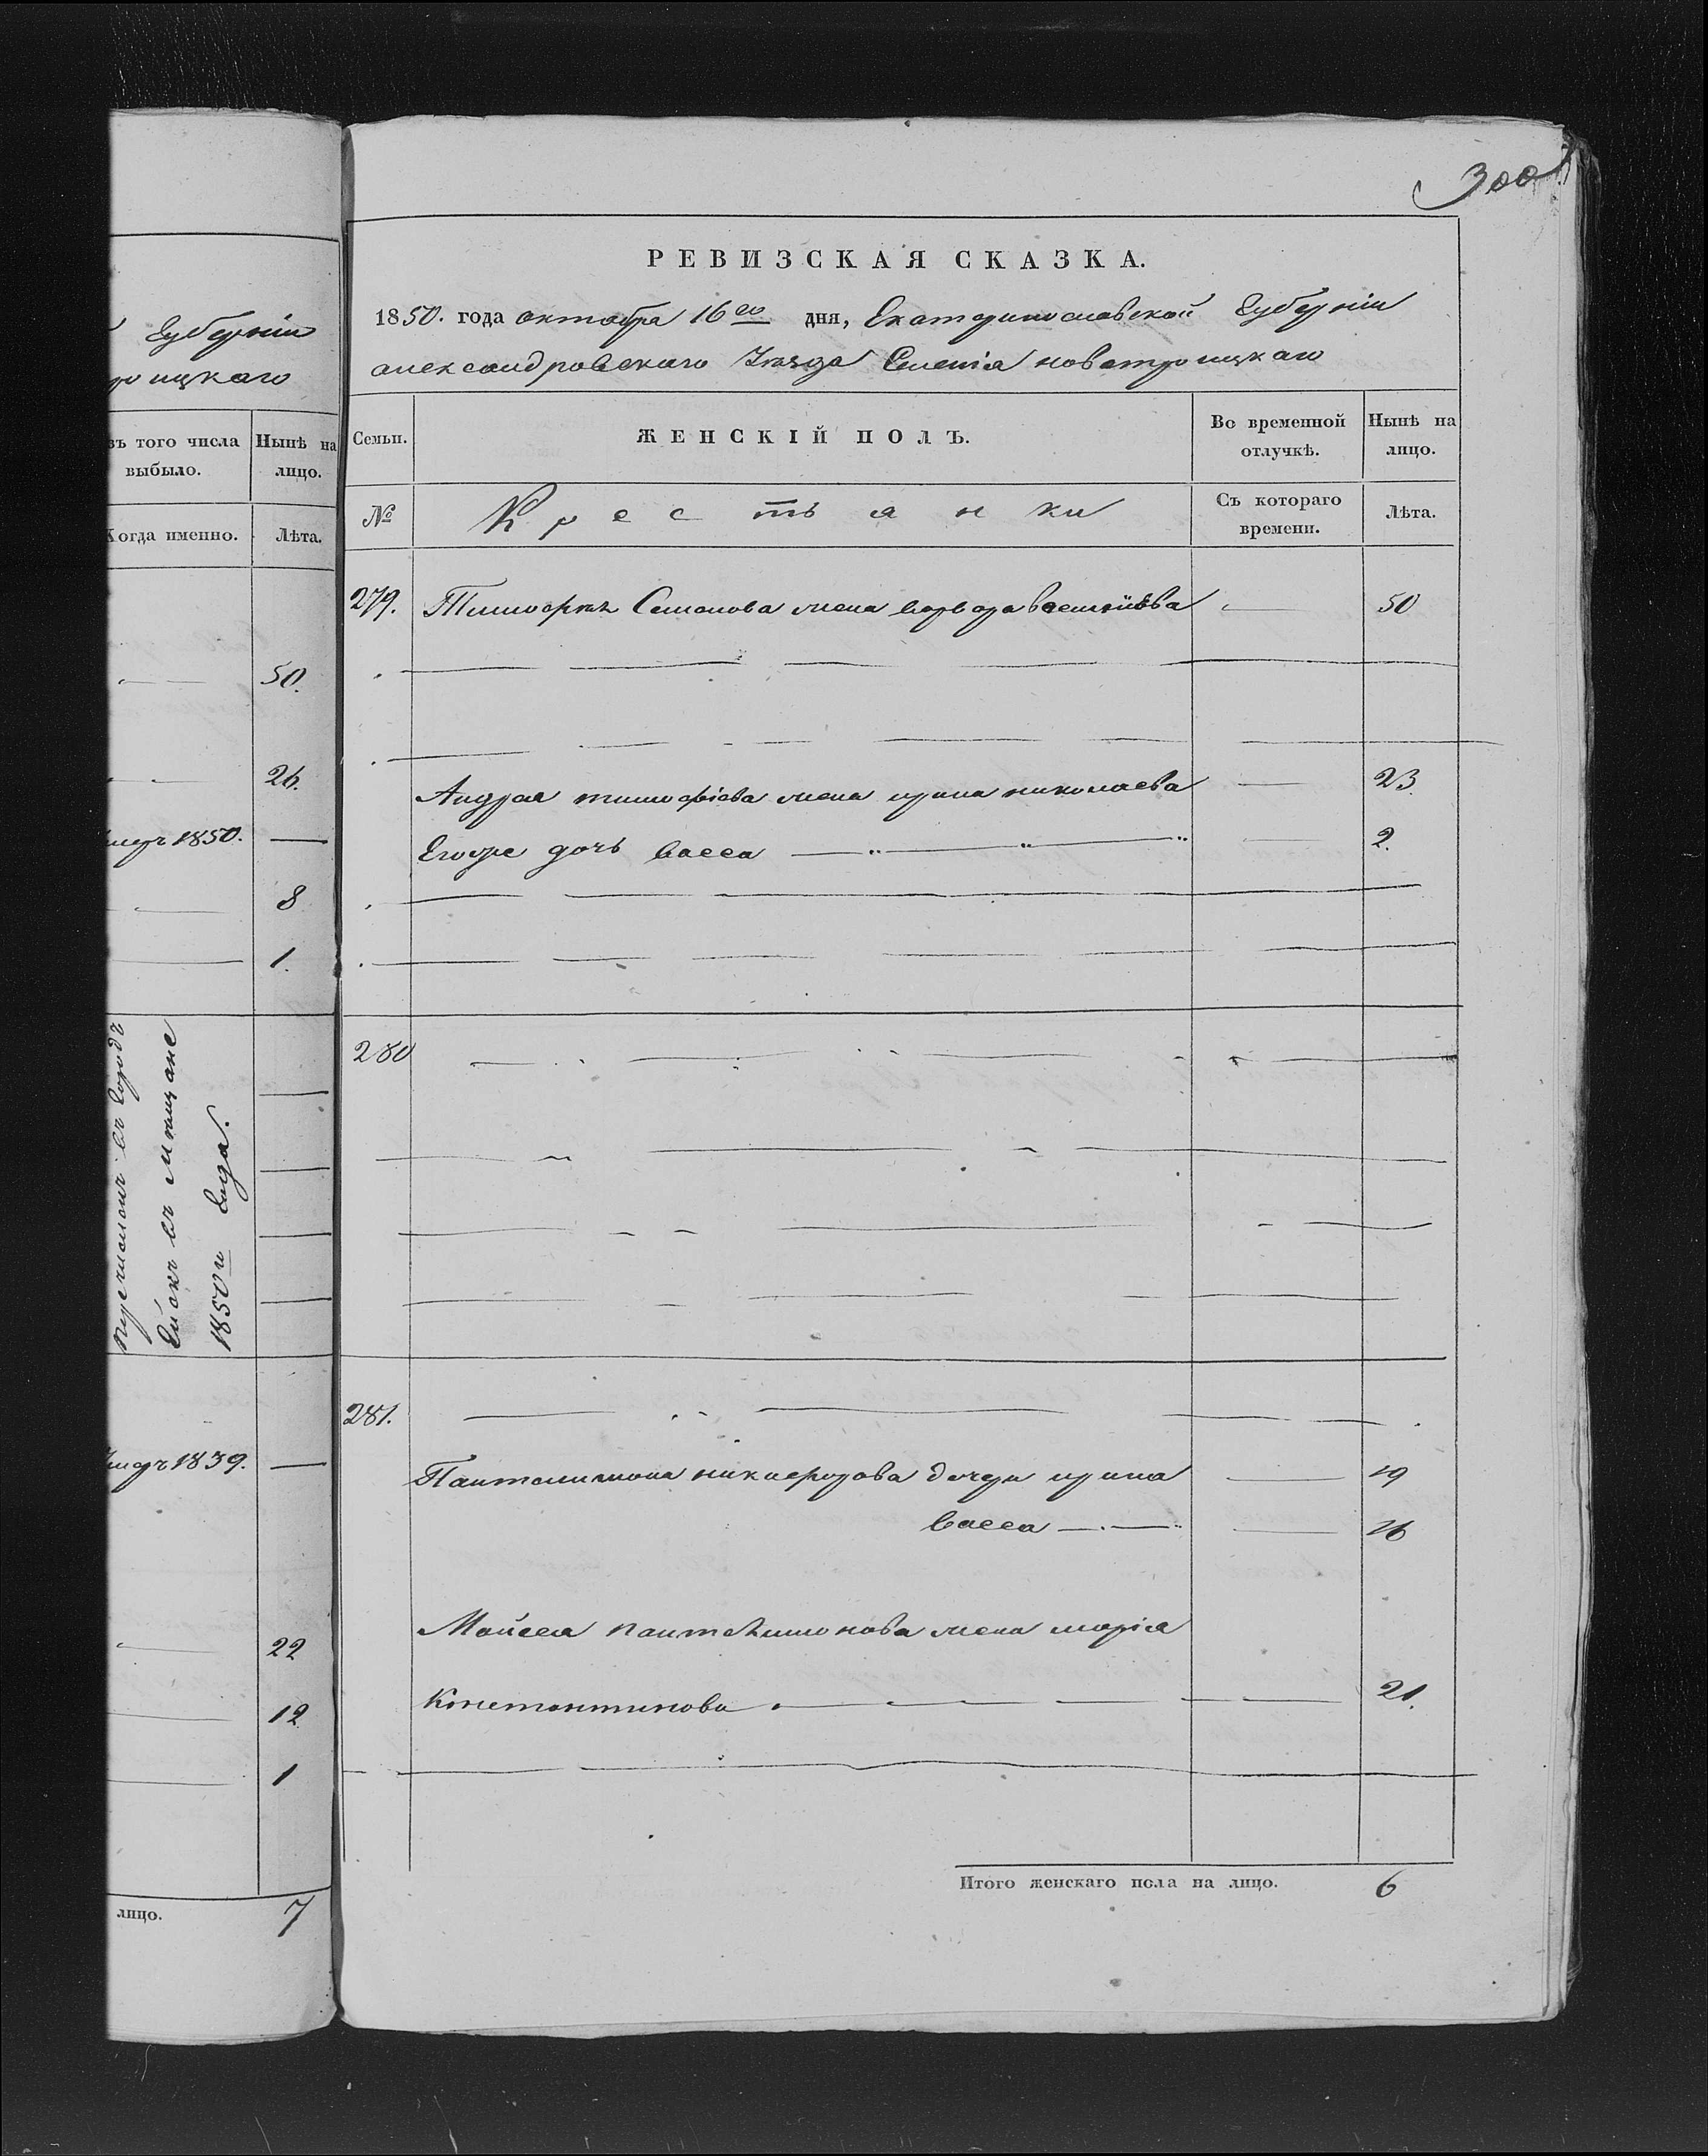 губерніи
роицкаго
въ того числа выбыло.
Нынѣ на лицо.
Когда именно.
Лѣта.
50.
26.
1850.
8
1.
въ городъ
въ мещане
1850 года.
1839.
22
12
1
лицо.
7
300
РЕВИЗСКАЯ СКАЗКА.
1850. года октобра 16го дня, Екатеринославской губерніи
александровскаго уѣзда Селенія новотроицкаго
Семьи.
ЖЕНСКІЙ ПОЛЪ.
Во временной отлучкѣ.
Нынѣ на лицо.
№
Крестьянки
Съ котораго времени.
Лѣта.
279. Тимофея Семонова жена варвара васильева 50
Андрея тимофіева жена ирина николаева 23.
Егоре дочь васса 2.
280
281.
Пантелимона никифорова дочери ирина 19
васса 16
Мойсея пантелимонова жена марія
Константинова 21.
Итого женскаго пола на лицо. 6